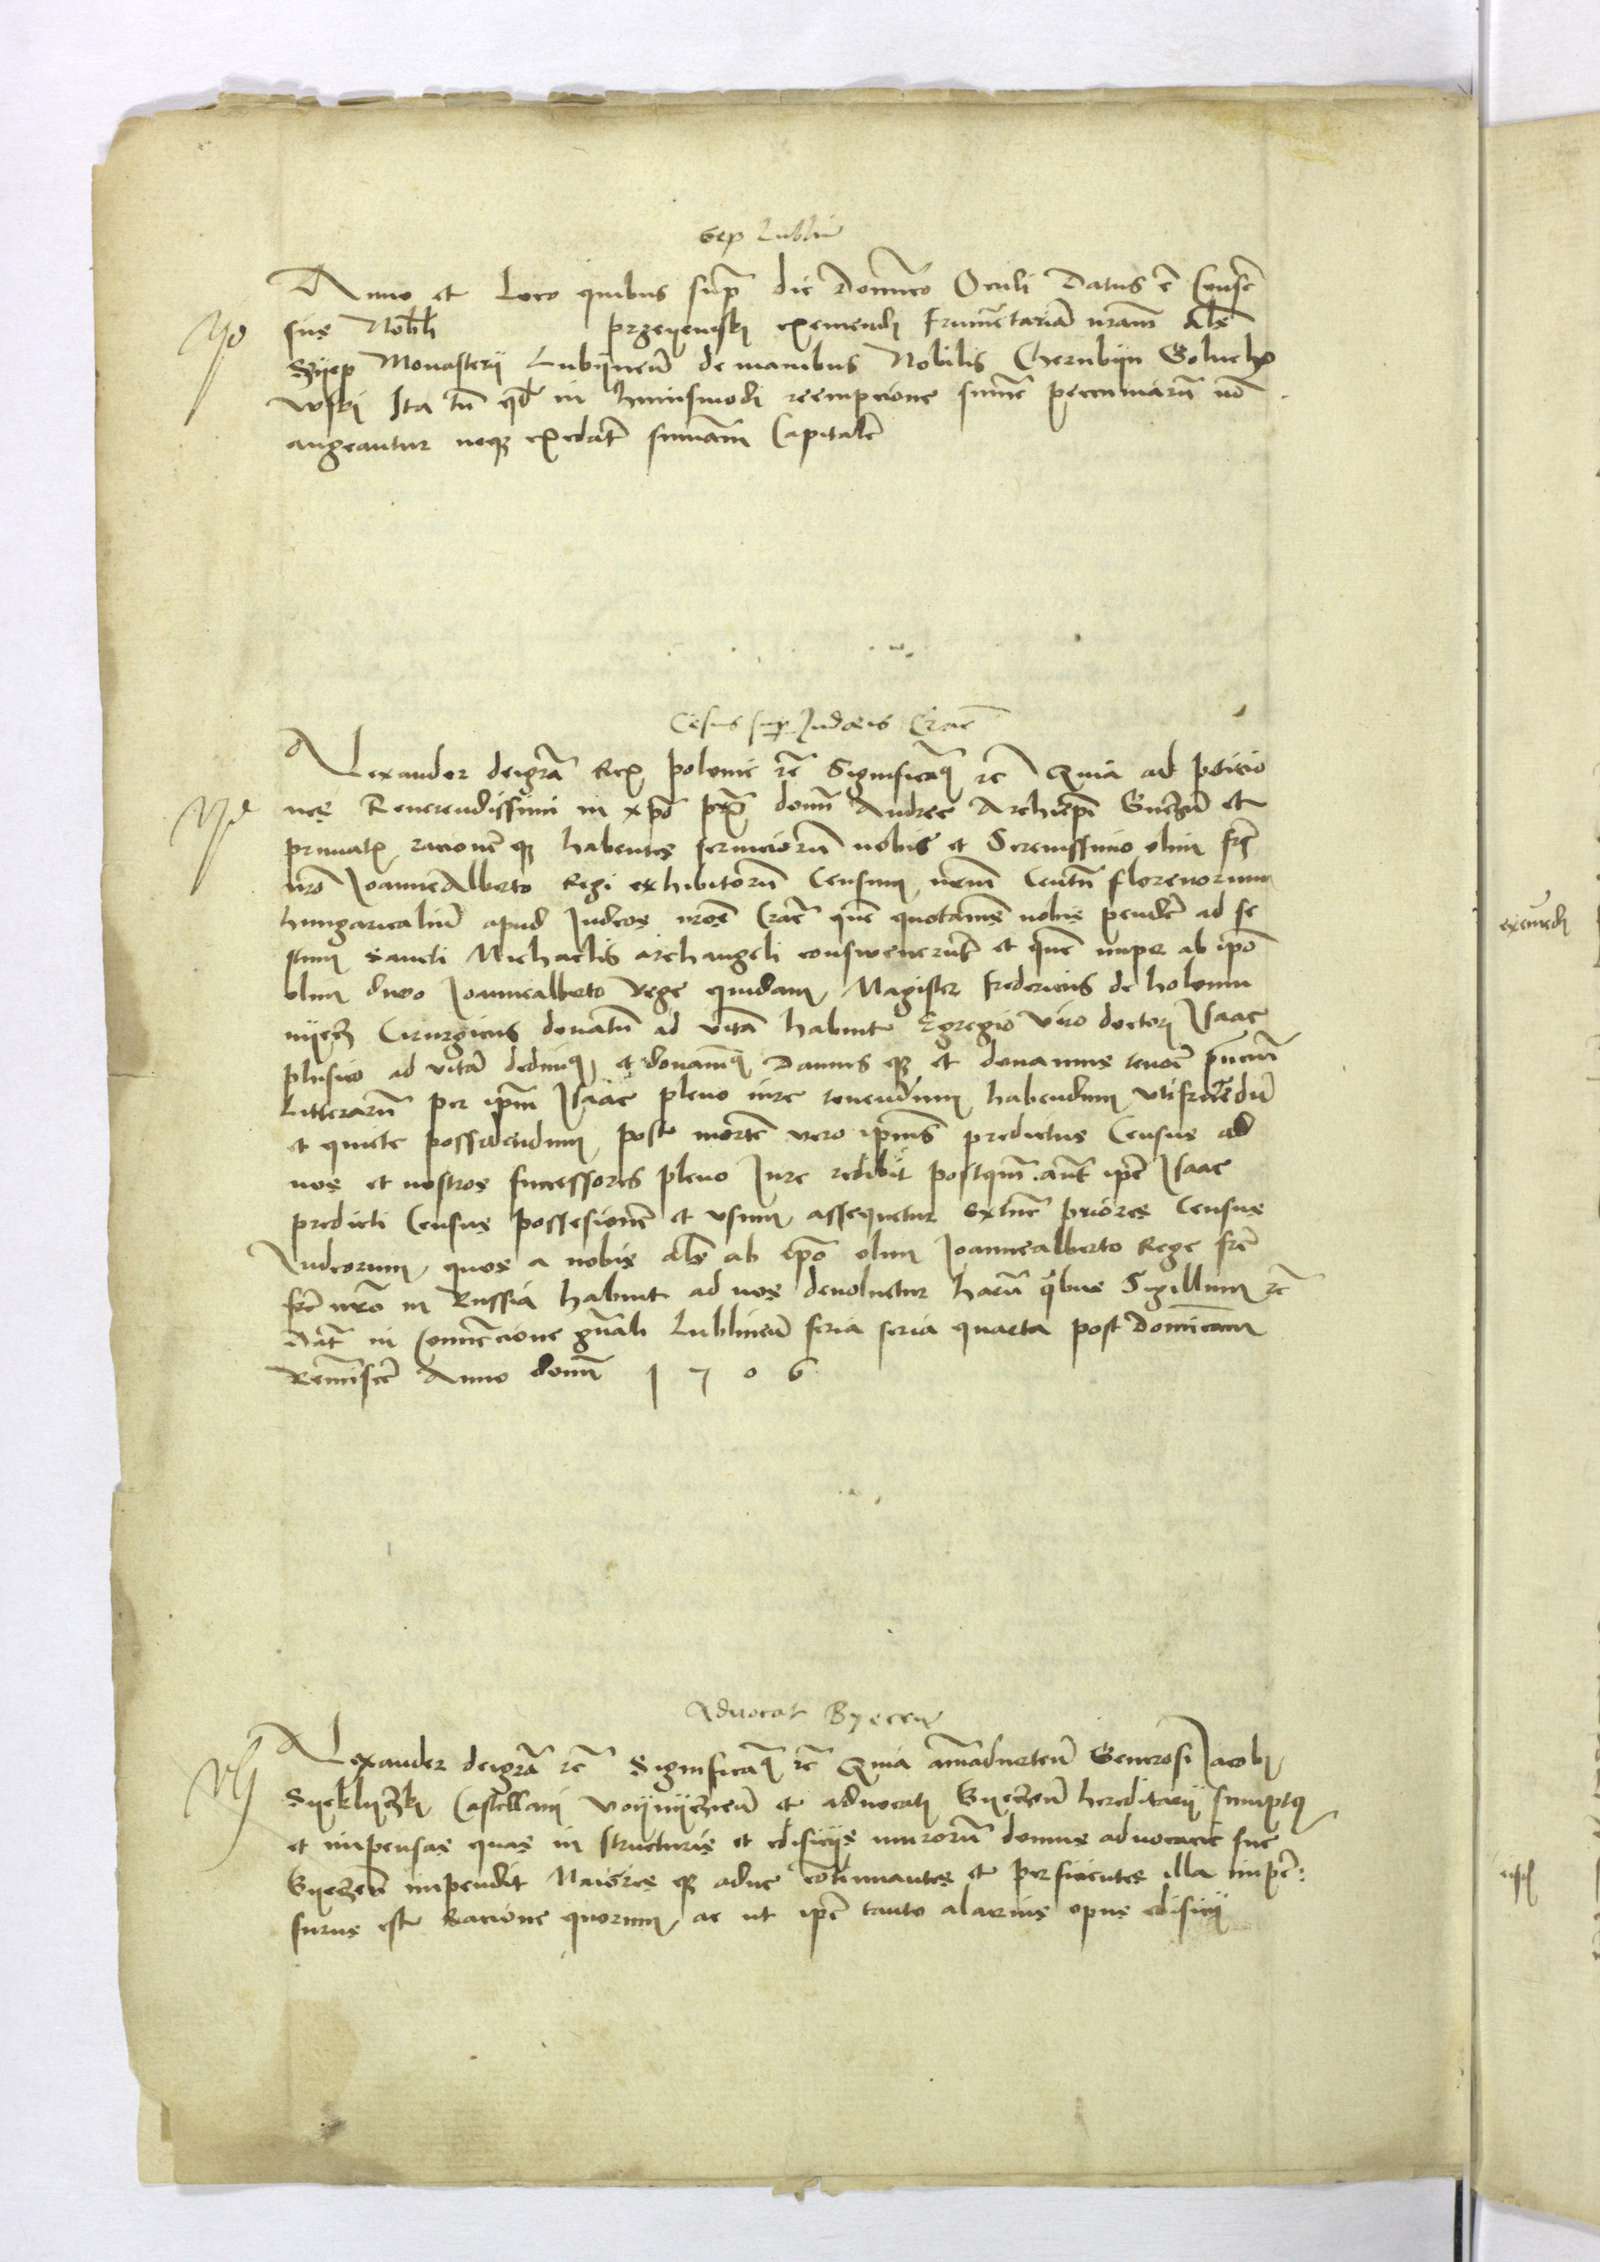 Sep Lubin
Anno et loco quibus supra die Dominico Oculi Datus e Consen
sus Nobili przeyemski eximendi frumentariam nostram als
Syep Monasterii Lubynen de manibus Nobilis Cherubyn Golucho
wski Ita tn qd in huiusmodi reempcione summe peccuniarum no
augeantur neque excedant summam Capitalem
Census super Judeis Crac
Alexander dei gra Rex polonie etc Significamus etc Quia ad peticio
nes Reverendissimi in xpo pris domini Andree Archiepi Gneznen et
primatis racionem que habentes serviciorum nobis et Serenissimo olim fri
nro Joannealberto Regi exhibitorum Censum nrum Centum florenorum
hungaricalium apud Judeos nros Crac quem quotannis nobis pendere ad fe
stum Sancti Michaelis archangeli consueverunt et quem nuper ab ipso
olim divo Joannealberto Rege quidam Magister Fredericus de holomu
nyecz Cirurgicus donatum ad vitam habuit Egregio viro doctori Isaac
phisico ad vitam dedimus et donavimus Damus que et donamus tenore pntium
litterarum per ipm Isaac pleno iure tenendum habendum utifruendum
et quiete possidendum post mortem vero ipius predictus Census ad
nos et nostros successores pleno Jure redibit postqum aut ipe Isaac
predicti Census possesionem et usum assequetur extunc priores Census
Judeorum quos a nobis als ab ipo olim Joannealberto Rege fre
fre nro in Russia habuit ad nos devoluetur harum quibus Sigillum etc
Dat in Convencione gnali Lublinen feria feria quarta post Dominicam
Reminiscere Anno domini 1 7 0 6
Advocat Byecen
Alexander dei gra etc Significamus etc Quia animadverten Generosi Jacobi
Syeklyczki Castellani Voyniczien et advocati Byeczen hereditarii sumptus
et impensas quas in structuris et edificiis murorum domus advocacie sue
Byeczen impendit Maiores que aduc continuantes et perficientes illa impen
surus est Racione quorum ac ut ipe tanto alacrius opus edificii